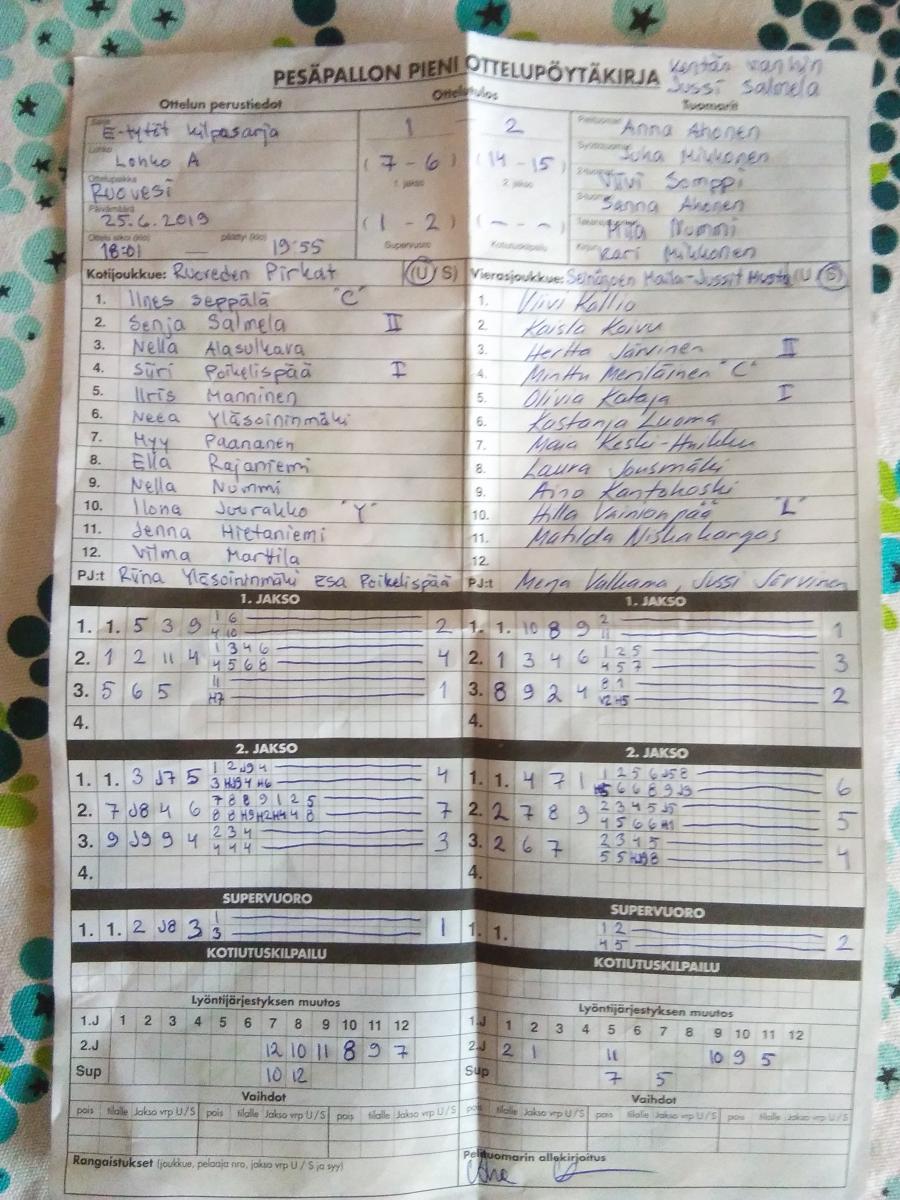 PESÄPALLON PIENI OTTELUPÖYTÄKIRJA
Kentän vanhin
Jussi Salmela
Ottelun perustiedot
Ottelutulos
Tuomarit
E-tytöt kilpasarja
1 - 2
Anna Ahonen
Lohko
Lohko A
(7 - 6) (14 - 15)
Juha Mikkonen
Ottelupaikka
Ruovesi
1. jakso 2. jakso
Viivi Somppi
Päivämäärä
25.6.2019
(1 - 2) (- - -)
Sanna Ahonen
18:01 — 19:55
Supervuoro Kotiutuskilpailu
Nummi
Kari Mikkonen
Kotijoukkue: Ruoveden Pirkat (U/S)
1. Iines Seppälä "C"
2. Senja Salmela II
3. Nella Alasulkava
4. Siiri Poikelispää I
5. Iiris Manninen
6. Neea Yläsoininmäki
7. Myy Paananen
8. Ella Rajaniemi
9. Nella Nummi
10. Ilona Juurakko "Y"
11. Jenna Hietaniemi
12. Vilma Marttila
PJ:t Riina Yläsoininmäki Esa Poikelispää
Vierasjoukkue: Seinäjoen Maila-Jussit Musta (U/S)
1. Viivi Kallio
2. Kaisla Koivu
3. Hertta Järvinen II
4. Minttu Meriläinen "C"
5. Olivia Kataja I
6. Kastanja Luoma
7. Maria Keski-
8. Laura Jousmäki
9. Aino Kantokoski
10. Hilla Vainionpää "L"
11. Matilda Niskakangas
12.
PJ:t Merja Valkama, Jussi Järvinen
1. JAKSO
1. 1. 5 3 9
1 6
4 10
2
2. 1 2 11 4
1 3 4 6
4 5 6 8
4
3. 5 6 5
11
H7
1
4.
1. JAKSO
1. 1. 10 8 9
2
11
1
2. 1 3 4 6
1 2 5
4 5 7
3
3. 8 9 2 4
8 1
V2 H5
2
4.
2. JAKSO
1. 1. 3 J7 5
1 2 J9 4
3 HJ9 4 H6
4
2. 7 J8 4 6
7 8 8 9 1 2 5
8 8 H9 H2 H4 4 8
7
3. 9 J9 9 4
2 3 4
4 4 4
3
4.
2. JAKSO
1. 1. 4 7 1
1 2 5 6 J5 8
6 6 8 9 J9
6
2. 2 7 8 9
2 3 4 5 J5
4 5 6 6 H1
5
3. 2 6 7
2 3 4 5
5 5 HJ9 8
4
4.
SUPERVUORO
1. 1. 2 J8 3
1
3
1
SUPERVUORO
1. 1.
1 2
4 5
2
KOTIUTUSKILPAILU
KOTIUTUSKILPAILU
Lyöntijärjestyksen muutos
1.J 1 2 3 4 5 6 7 8 9 10 11 12
2.J 12 10 11 8 9 7
Sup 10 12
Lyöntijärjestyksen muutos
1.J 1 2 3 4 5 6 7 8 9 10 11 12
2.J 2 1 11 10 9 5
Sup 7 5
Vaihdot
pois tilalle Jakso vrp U/S pois tilalle Jakso vrp U/S pois tilalle Jakso vrp U/S
Vaihdot
pois tilalle Jakso vrp U/S pois tilalle Jakso vrp U/S pois tilalle Jakso vrp U/S
Rangaistukset (joukkue, pelaaja nro, jakso vrp U / S ja syy)
Pelituomarin allekirjoitus